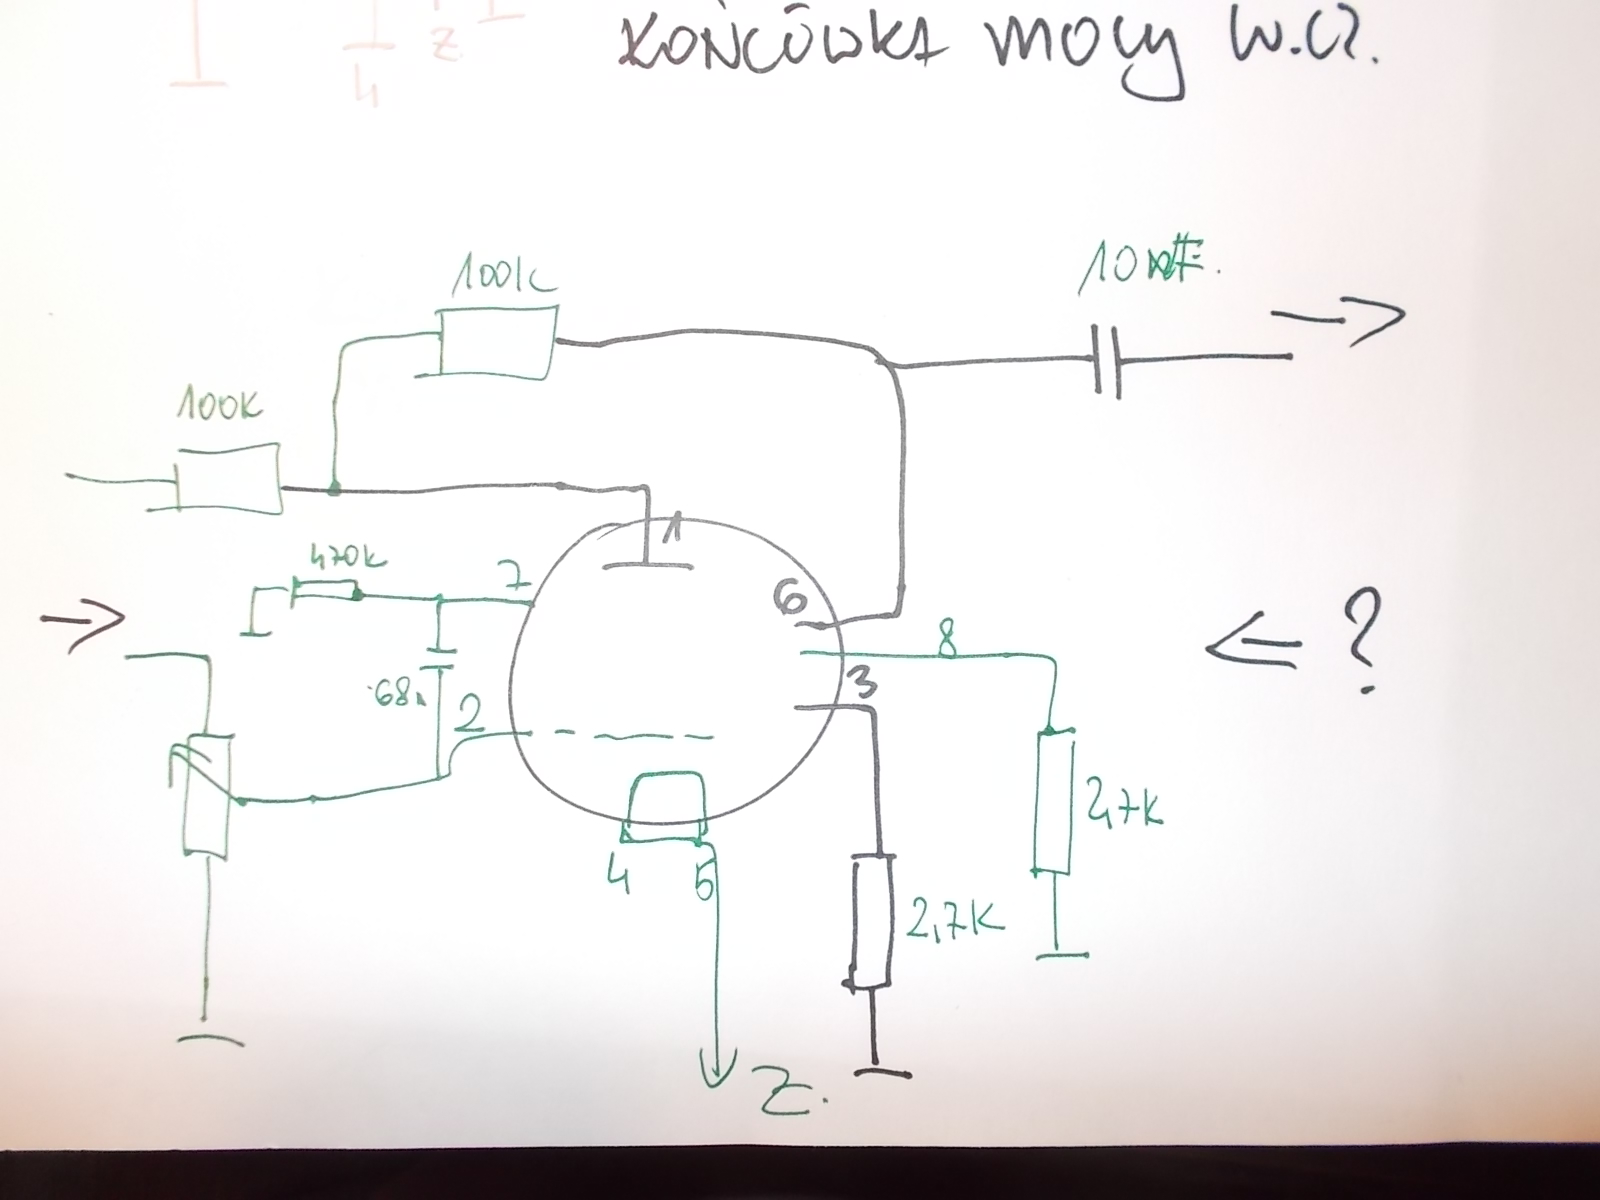 KOŃCÓWKA MOCY W.CZ.
Z
4
100K
10nF.
100K
1
470K
7
6
8
?
68n
2
3
2,7K
4
5
2,7K
Z.